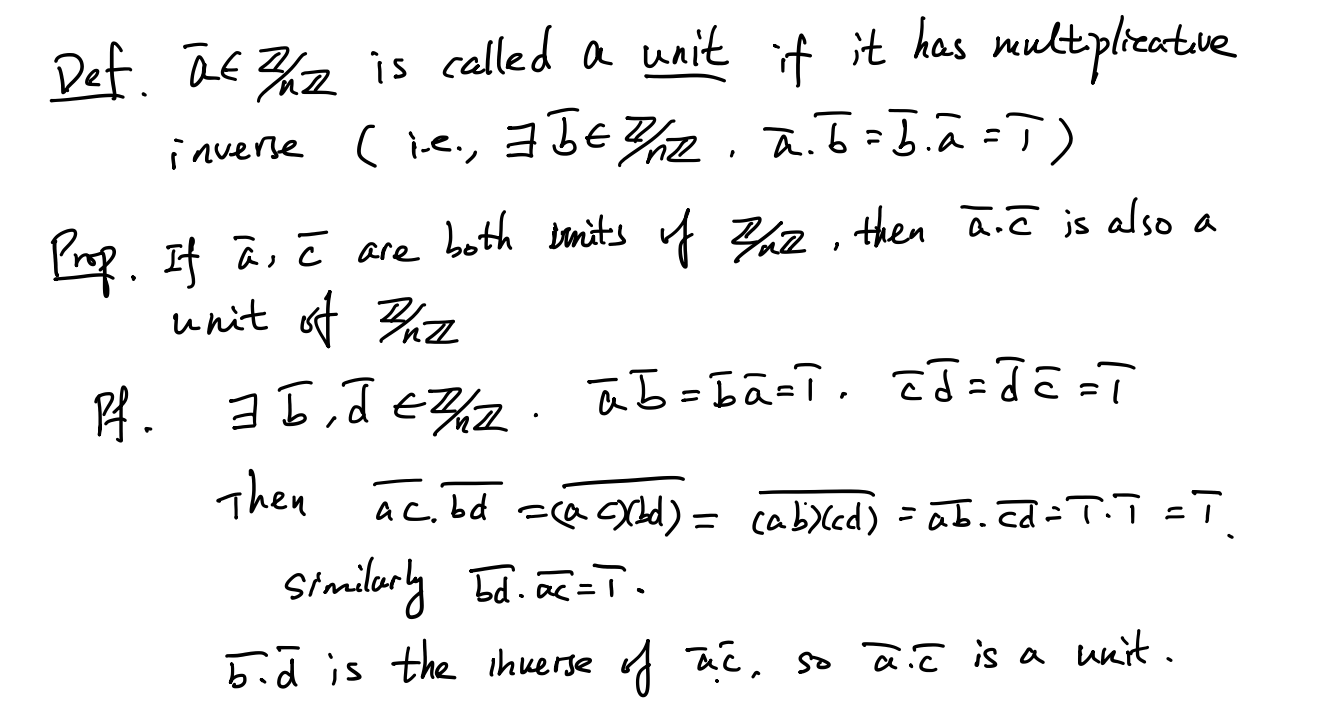 Def. a̅ ∈ ℤ/nℤ is called a unit if it has multiplicative
inverse ( i.e., ∃ b̅ ∈ ℤ/nℤ . a̅ . b̅ = b̅ . a̅ = 1̅ )
Prop. If a̅, c̅ are both units of ℤ/nℤ , then a̅ . c̅ is also a
unit of ℤ/nℤ
Pf. ∃ b̅ , d̅ ∈ ℤ/nℤ . a̅ b̅ = b̅ a̅ = 1̅ . c̅ d̅ = d̅ c̅ = 1̅
Then a̅c̅ . b̅d̅ = \overline{(ac)(bd)} = \overline{(ab)(cd)} = a̅b̅ . c̅d̅ = 1̅ . 1̅ = 1̅ .
similarly b̅d̅ . a̅c̅ = 1̅ .
b̅ . d̅ is the inverse of a̅ . c̅ , so a̅ . c̅ is a unit .